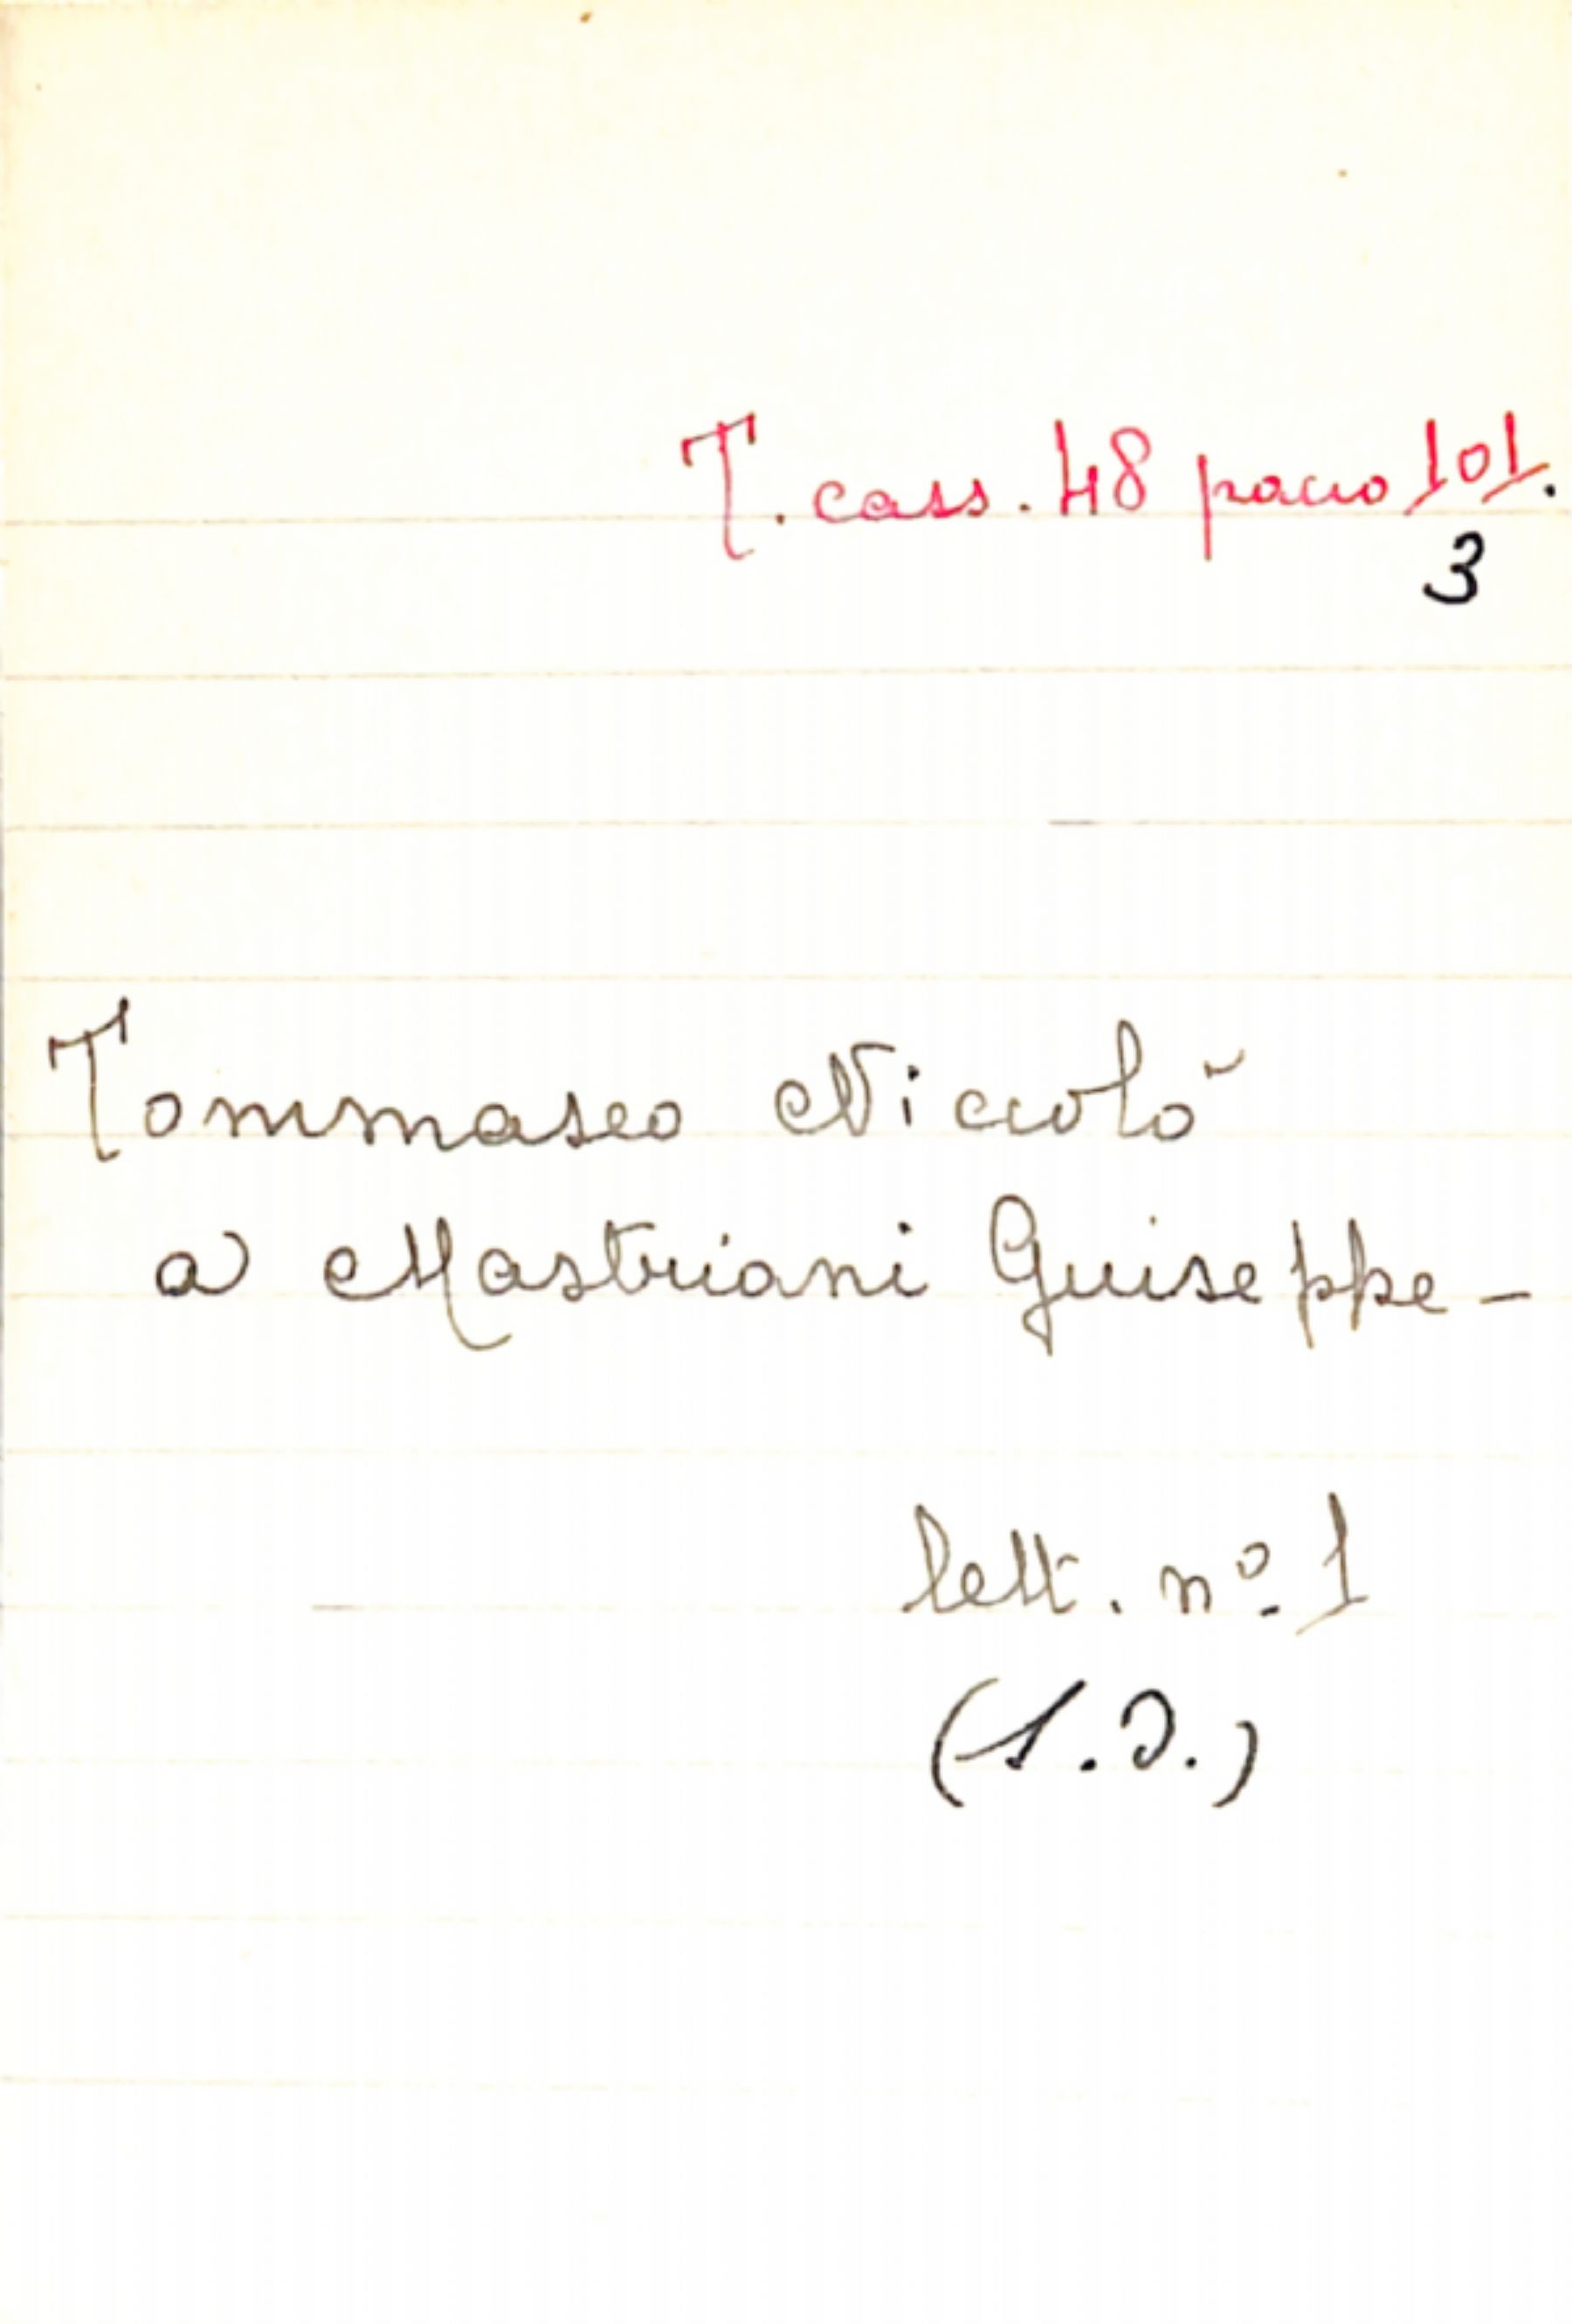 T. cass. 48 pacco 101.
3
Tommaseo Niccolò
a Mastriani Giuseppe -
lett. nº 1
(S.D.)